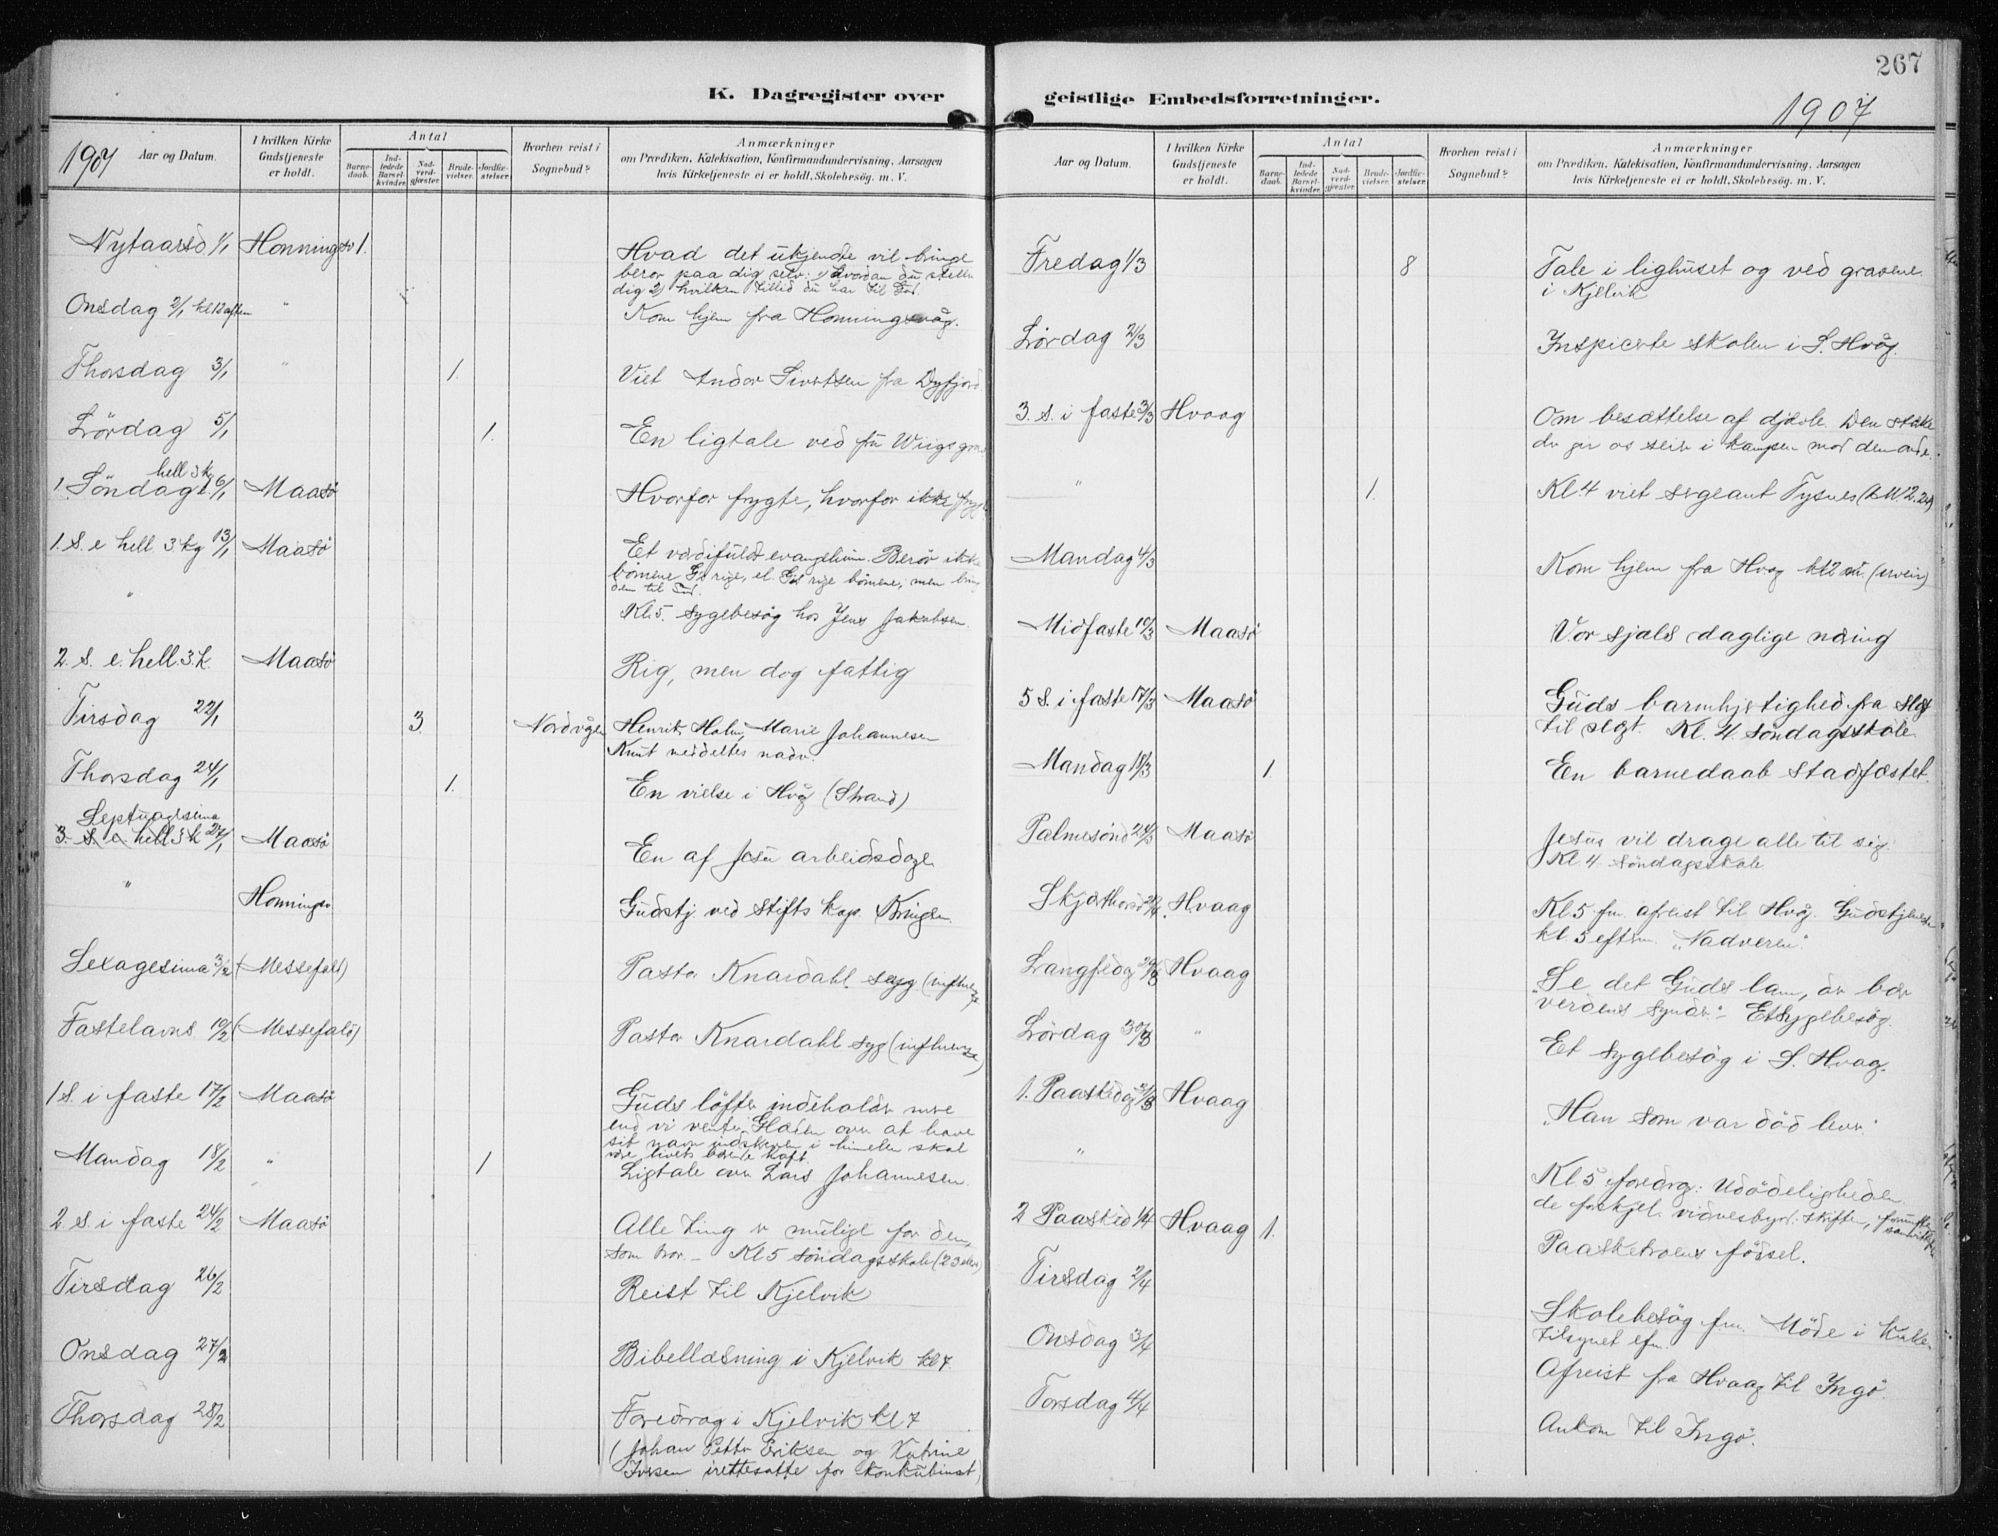 267
K. Dagregister over geistlige Embedsforretninger.
1907
1907 Aar og Datum.
I hvilken Kirke Gudstjeneste er holdt.
Antal
Barnedaab.
Indledede Barselkvinder.
Nadverdgjæster.
Brudevielser.
Jordfæstelser.
Hvorhen reist i Sognebud?
Anmærkninger
om Prædiken, Katekisation, Konfirmandundervisning, Aarsagen
hvis Kirketjeneste ei er holdt, Skolebesøg. m. V.
Nytaarsd 1/1 Honningsv 1. Hvad det ukjendte vil bringe
beror paa dig selv: 1) hvordan du steller
dig 2) hvilken tillid du har til Gud.
Onsdag 2/1 kl 12 aften " Kom hjem fra Honningsvåg.
Thorsdag 3/1 " 1. Viet Andor Sivertsen fra Dyfjord
Lördag 5/1 1. En ligtale ved fru Wiigs grav
1. Söndag e hell 3 kg 6/1 Maasö Hvorfor frygte, hvorfor ikke frygte
1. S. e hell 3 kg 13/1 Maasö Et værdifuldt evangelium. Berör ikke
börnene Gds rige, el. Gds rige börnene, men bring
dem til Gud.
" Kl 5. Sygebesög hos Jens Jakobsen.
2. S. e. hell. 3 k. Maasö Rig, men dog fattig
Tirsdag 22/1 3. Nordvågen Henrik, Holm, Marie Johannesen
Knut meddeltes nadv.
Thorsdag 24/1 1. En vielse i Hvåg (Strand)
Septuagesima
3. S. e. hell 3 k 27/1 Maasö En af Jesu arbeidsdage
" Honningsv. Gudstj. ved Stifts kap. Kringen
Sexagesima 3/2 (Messefald) Pastor Knardahl syg (influenza
Fastelavns 10/2 (Messefald) Pastor Knardahl syg (influenza)
1 S. i faste 17/2 Maasö Guds löfter indeholder mere
end vi venter. Glæden over at have
sit navn indskrevet i himmelen skal
være livets bærende kraft.
Mandag 18/2 " 1 Ligtale over Lars Johannesen.
2. S. i faste 24/2 Maasö Alle ting er mulige for den,
som tror. – Kl 5 Söndagsskole (23 elever)
Tirsdag 26/2 Reist til Kjelvik
Onsdag 27/2 Bibellæsning i Kjelvik kl 7.
Thorsdag 28/2 Foredrag i Kjelvik kl 7
(Johan Petter Eriksen og Katrine
Iversen irettesatte for konkubinat)
Aar og Datum.
I hvilken Kirke Gudstjeneste er holdt.
Antal
Barnedaab.
Indledede Barselkvinder.
Nadverdgjæster.
Brudevielser.
Jordfæstelser.
Hvorhen reist i Sognebud?
Anmærkninger
om Prædiken, Katekisation, Konfirmandundervisning, Aarsagen
hvis Kirketjeneste ei er holdt, Skolebesøg. m. V.
Fredag 1/3 8 Tale i lighuset og ved gravene
i Kjelvik
Lördag 2/3 Inspicerte skolen i S. Hvåg.
3. S. i faste 3/3 Hvaag Om besættelse af djævle. Den stærke
der gir os seier i kampen mod den onde.
" 1. Kl. 4 viet sergeant Tysnes
Mandag 4/3 Kom hjem fra Hvåg kl 2 (uveir)
Midfaste 10/3 Maasö Vor sjæls daglige næring
5 S. i faste 17/3 Maasö Guds barmhjertighed fra slægt
til slegt. Kl. 4. Söndagsskole
Mandag 18/3 1. En barnedaab stadfæstet.
Palmesönd 24/3 Maasö Jesus vil drage alle til sig.
Kl. 4. Söndagsskole
Skjærthorsd Hvaag Kl 5 fm. afreist til Hvåg. Gudstjeneste
kl 5 efterm. "Nadveren".
Langfredag 29/3 Hvaag "Se det Guds lam, der bær
verdens synder". – Et Sygebesög.
Lördag 30/3 " Et sygebesög i S. Hvåg.
1. Paaskedag 31/3 Hvaag "Han som var död lever."
" Kl 5 foredrag: Udödeligheden.
de forskjel. vidnesbyrd. skriften, fornuften
samvittighed
2 Paasked 1/4 Hvaag 1. Paasketroens födsel.
Tirsdag 2/4
Onsdag 3/4 Skolebesög fm. Möde i
tilsynet efm.
Torsdag 4/4 Afreist fra Hvaag til Ingö.
Ankom til Ingö.